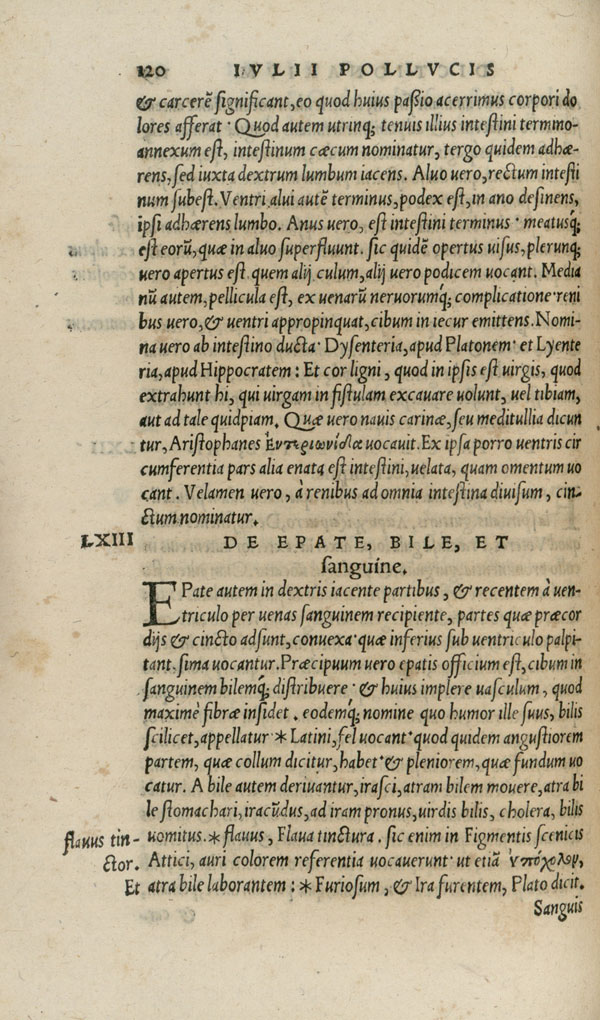 120 IVLII POLLVCIS
& carcerē significant, eo quod huius passio acerrimus corpori do
lores afferat · Quod autem utrinq; tenuis illius intestini termino-
annexum est, intestinum cæcum nominatur, tergo quidem adhæ-
rens, sed iuxta dextrum lumbum iacens. Aluo uero, rectum intesti
num subest. Ventri alui autē terminus, podex est, in ano desinens,
ipsi adhærens lumbo. Anus uero, est intestini terminus · meatusq́;
est eorū, quæ in aluo superfluunt. sic quidē opertus uisus, plerunq;
uero apertus est. quem alij culum, alij uero podicem uocant. Media
nū autem, pellicula est, ex uenarū neruorumq́; complicatione · reni
bus uero, & uentri appropinquat, cibum in iecur emittens. Nomi-
na uero ab intestino ducta · Dysenteria, apud Platonem · et Lyente
ria, apud Hippocratem : Et cor ligni, quod in ipsis est uirgis, quod
extrahunt hi, qui uirgam in fistulam excauare uolunt, uel tibiam,
aut ad tale quidpiam. Quæ uero nauis carinæ, seu meditullia dicun
tur, Aristophanes Ἐντεριωνίδα uocauit. Ex ipsa porro uentris cir
cumferentia pars alia enata est intestini, uelata, quam omentum uo
cant. Velamen uero, à renibus ad omnia intestina diuisum, cin-
ctum nominatur.
LXIII DE EPATE, BILE, ET
sanguine.
EPate autem in dextris iacente partibus, & recentem à uen-
triculo per uenas sanguinem recipiente, partes quæ præcor
dijs & cincto adsunt, conuexa · quæ inferius sub uentriculo palpi-
tant. sima uocantur. Præcipuum uero epatis officium est, cibum in
sanguinem bilemq́; distribuere · & huius implere uasculum, quod
maximè fibræ insidet. eodemq́; nomine quo humor ille suus, bilis
scilicet, appellatur * Latini, fel uocant · quod quidem angustiorem
partem, quæ collum dicitur, habet · & pleniorem, quæ fundum uo
catur. A bile autem deriuantur, irasci, atram bilem mouere, atra bi
le stomachari, iracūdus, ad iram pronus, uirdis bilis, cholera, bilis
uomitus. * flauus, Flaua tinctura. sic enim in Figmentis scenicis
flauus tin-
ctor.
Attici, auri colorem referentia uocauerunt · ut etiā ὑπόχολον,
Et atra bile laborantem : * Furiosum, & Ira furentem, Plato dicit.
Sanguis